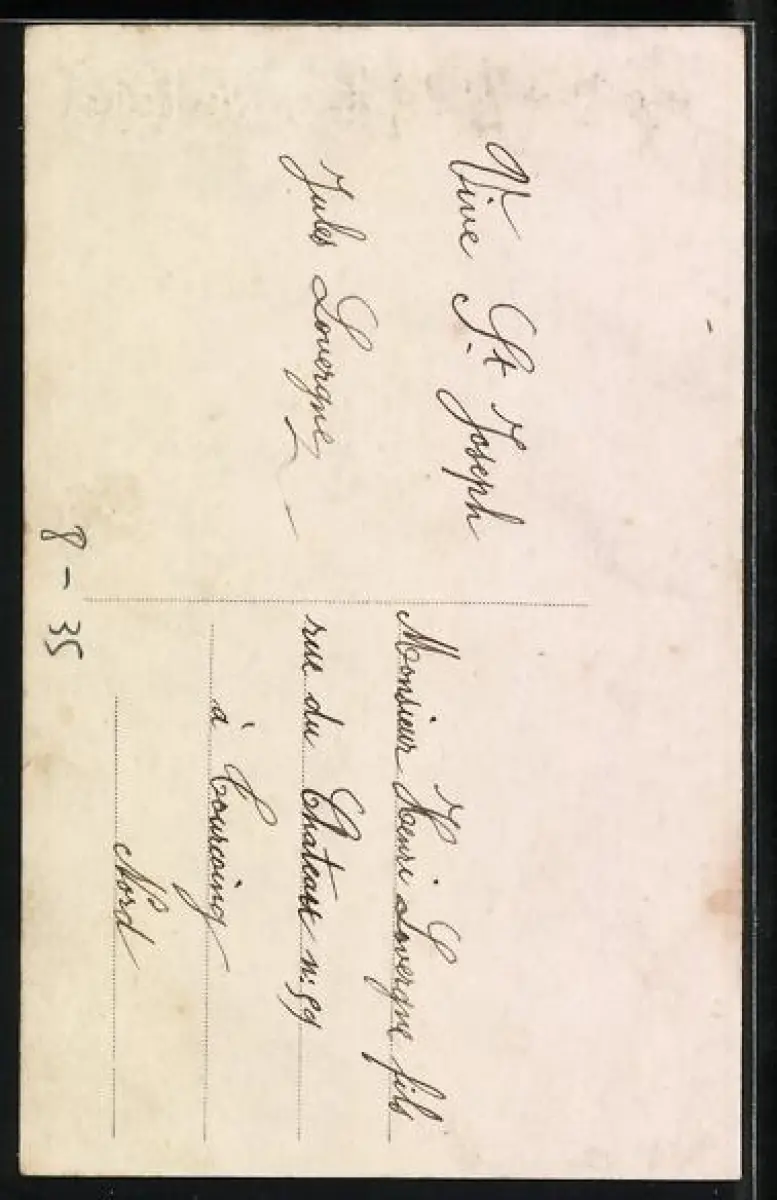 Vive St. Joseph
Jules Lovergne
Monsieur Henri Lovergne fils
rue du Chateau n: 59
à Tourcoing
Nord
8 - 35